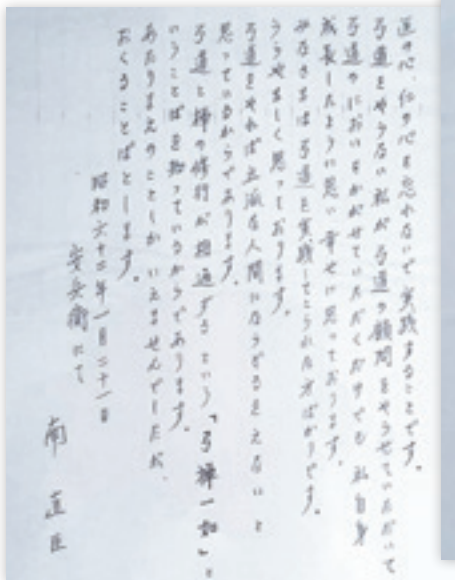 道の心、仁の心を忘れないで実践することです。
弓道をやらない私が弓道の顧問をやらせていただいて
弓道のにおいをかがせていただくだけでも私自身
成長したように思い幸せに思っております。
みなさまは弓道を実践してこられた方ばかりです。
うらやましく思っております。
弓道をやれば立派な人間にならざるをえないと
思っているからであります。
弓道と禅の修行が相通ずるという「弓禅一如」と
いうことばを知っているからであります。
あたりまえのことしかいえませんでしたが、
おくることばとします。
昭和六十二年一月二十一日
安兵衛にて
南 直臣